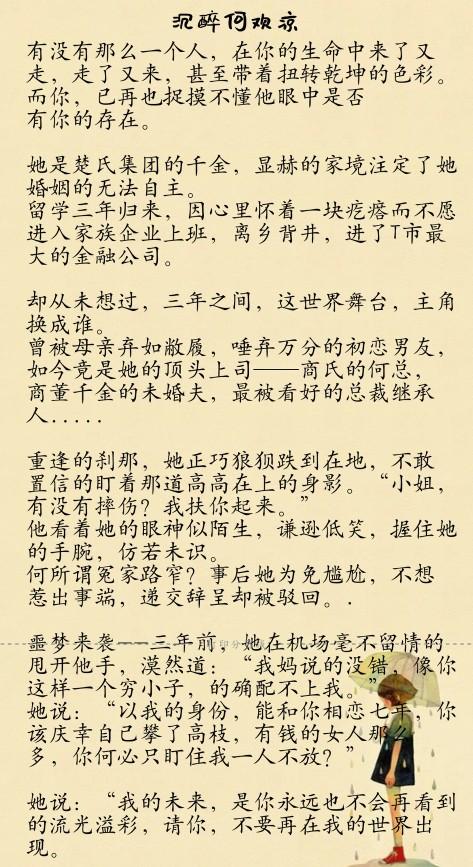 沉醉何欢凉
有没有那么一个人，在你的生命中来了又
走，走了又来，甚至带着扭转乾坤的色彩。
而你，已再也捉摸不懂他眼中是否
有你的存在。
她是楚氏集团的千金，显赫的家境注定了她
婚姻的无法自主。
留学三年归来，因心里怀着一块疙瘩而不愿
进入家族企业上班，离乡背井，进了T市最
大的金融公司。
却从未想过，三年之间，这世界舞台，主角
换成谁。
曾被母亲弃如敝履，唾弃万分的初恋男友，
如今竟是她的顶头上司——商氏的何总，
商董千金的未婚夫，最被看好的总裁继承
人.....
重逢的刹那，她正巧狼狈跌到在地，不敢
置信的盯着那道高高在上的身影。“小姐，
有没有摔伤？我扶你起来。”
他看着她的眼神似陌生，谦逊低笑，握住她
的手腕，仿若未识。
何所谓冤家路窄？事后她为免尴尬，不想
惹出事端，递交辞呈却被驳回。.
噩梦来袭——三年前，她在机场毫不留情的
甩开他手，漠然道：“我妈说的没错，像你
这样一个穷小子，的确配不上我。”
她说：“以我的身份，能和你相恋七年，你
该庆幸自己攀了高枝，有钱的女人那么
多，你何必只盯住我一人不放？”
她说：“我的未来，是你永远也不会再看到
的流光溢彩，请你，不要再在我的世界出
现。